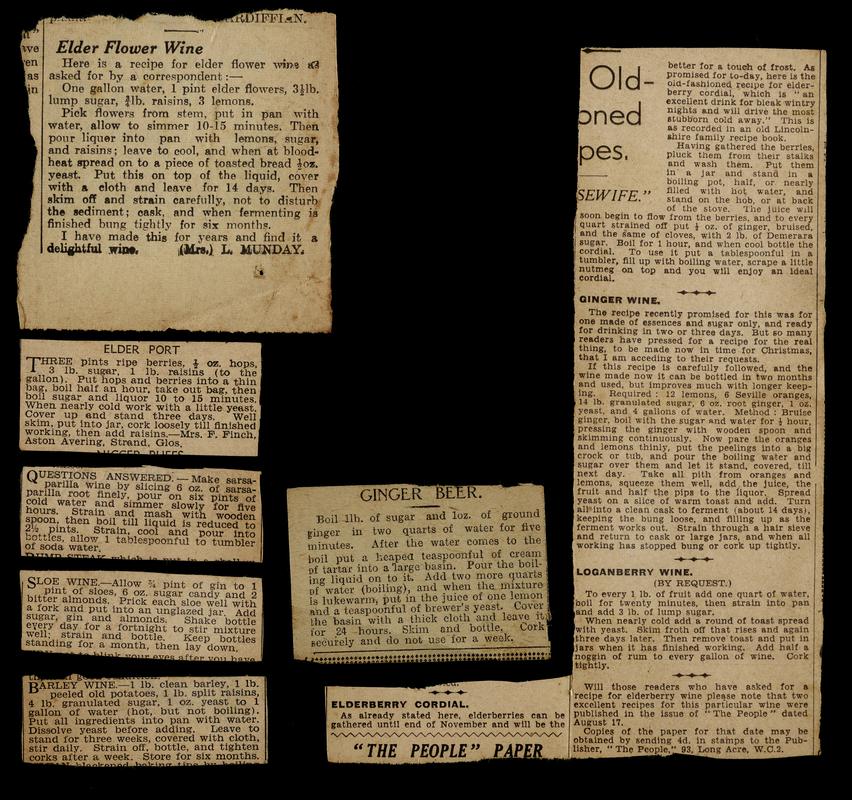 Elder Flower Wine
Here is a recipe for elder flower wine as
asked for by a correspondent :—
One gallon water, 1 pint elder flowers, 3½lb.
lump sugar, ¾lb. raisins, 3 lemons.
Pick flowers from stem, put in pan with
water, allow to simmer 10-15 minutes. Then
pour liquer into pan with lemons, sugar,
and raisins; leave to cool, and when at blood-
heat spread on to a piece of toasted bread ½oz.
yeast. Put this on top of the liquid, cover
with a cloth and leave for 14 days. Then
skim off and strain carefully, not to disturb
the sediment; cask, and when fermenting is
finished bung tightly for six months.
I have made this for years and find it a
delightful wine. (Mrs.) L. MUNDAY.
ELDER PORT
THREE pints ripe berries, ½ oz. hops,
3 lb. sugar, 1 lb. raisins (to the
gallon). Put hops and berries into a thin
bag, boil half an hour, take out bag, then
boil sugar and liquor 10 to 15 minutes.
When nearly cold work with a little yeast.
Cover up and stand three days. Well
skim, put into jar, cork loosely till finished
working, then add raisins.—Mrs. F. Finch,
Aston Avering, Strand, Glos.
QUESTIONS ANSWERED.—Make sarsa-
parilla wine by slicing 6 oz. of sarsa-
parilla root finely, pour on six pints of
cold water and simmer slowly for five
hours. Strain and mash with wooden
spoon, then boil till liquid is reduced to
2½ pints. Strain, cool and pour into
bottles, allow 1 tablespoonful to tumbler
of soda water.
SLOE WINE.—Allow ¾ pint of gin to 1
pint of sloes, 6 oz. sugar candy and 2
bitter almonds. Prick each sloe well with
a fork and put into an unglazed jar. Add
sugar, gin and almonds. Shake bottle
every day for a fortnight to stir mixture
well; strain and bottle. Keep bottles
standing for a month, then lay down.
BARLEY WINE.—1 lb. clean barley, 1 lb.
peeled old potatoes, 1 lb. split raisins,
4 lb. granulated sugar, 1 oz. yeast to 1
gallon of water (hot, but not boiling).
Put all ingredients into pan with water.
Dissolve yeast before adding. Leave to
stand for three weeks, covered with cloth,
stir daily. Strain off, bottle, and tighten
corks after a week. Store for six months.
GINGER BEER.
Boil 1lb. of sugar and 1oz. of ground
ginger in two quarts of water for five
minutes. After the water comes to the
boil put a heaped teaspoonful of cream
of tartar into a large basin. Pour the boil-
ing liquid on to it. Add two more quarts
of water (boiling), and when the mixture
is lukewarm, put in the juice of one lemon
and a teaspoonful of brewer's yeast. Cover
the basin with a thick cloth and leave it
for 24 hours. Skim and bottle. Cork
securely and do not use for a week.
ELDERBERRY CORDIAL.
As already stated here, elderberries can be
gathered until end of November and will be the
"THE PEOPLE" PAPER
Old-
oned
pes.
SEWIFE."
better for a touch of frost. As
promised for to-day, here is the
old-fashioned recipe for elder-
berry cordial, which is "an
excellent drink for bleak wintry
nights and will drive the most
stubborn cold away." This is
as recorded in an old Lincoln-
shire family recipe book.
Having gathered the berries,
pluck them from their stalks
and wash them. Put them
in a jar and stand in a
boiling pot, half, or nearly
filled with hot water, and
stand on the hob, or at back
of the stove. The juice will
soon begin to flow from the berries, and to every
quart strained off put ¼ oz. of ginger, bruised,
and the same of cloves, with 2 lb. of Demerara
sugar. Boil for 1 hour, and when cool bottle the
cordial. To use it put a tablespoonful in a
tumbler, fill up with boiling water, scrape a little
nutmeg on top and you will enjoy an ideal
cordial.
GINGER WINE.
The recipe recently promised for this was for
one made of essences and sugar only, and ready
for drinking in two or three days. But so many
readers have pressed for a recipe for the real
thing, to be made now in time for Christmas,
that I am acceding to their requests.
If this recipe is carefully followed, and the
wine made now it can be bottled in two months
and used, but improves much with longer keep-
ing. Required: 12 lemons, 6 Seville oranges,
14 lb. granulated sugar, 6 oz. root ginger, 1 oz.
yeast, and 4 gallons of water. Method: Bruise
ginger, boil with the sugar and water for ½ hour,
pressing the ginger with wooden spoon and
skimming continuously. Now pare the oranges
and lemons thinly, put the peelings into a big
crock or tub, and pour the boiling water and
sugar over them and let it stand, covered, till
next day. Take all pith from oranges and
lemons, squeeze them well, add the juice, the
fruit and half the pips to the liquor. Spread
yeast on a slice of warm toast and add. Turn
all into a clean cask to ferment (about 14 days),
keeping the bung loose, and filling up as the
ferment works out. Strain through a hair sieve
and return to cask or large jars, and when all
working has stopped bung or cork up tightly.
LOGANBERRY WINE.
(BY REQUEST.)
To every 1 lb. of fruit add one quart of water,
boil for twenty minutes, then strain into pan
and add 3 lb. of lump sugar.
When nearly cold add a round of toast spread
with yeast. Skim froth off that rises and again
three days later. Then remove toast and put in
jars when it has finished working. Add half a
noggin of rum to every gallon of wine. Cork
tightly.
Will those readers who have asked for a
recipe for elderberry wine please note that two
excellent recipes for this particular wine were
published in the issue of "The People" dated
August 17.
Copies of the paper for that date may be
obtained by sending 4d. in stamps to the Pub-
lisher, "The People," 93, Long Acre, W.C.2.